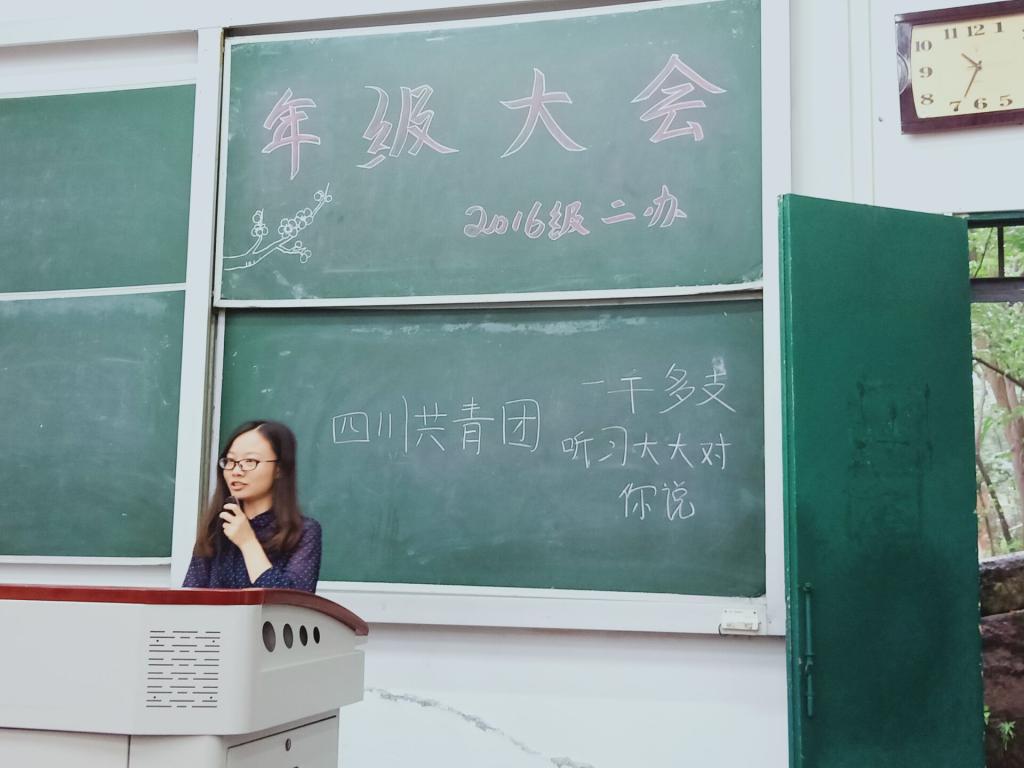 年级大会
2016级二办
四川共青团
一千多支
听习大大对
你说
10 11 12 1
9
8 7 6 5